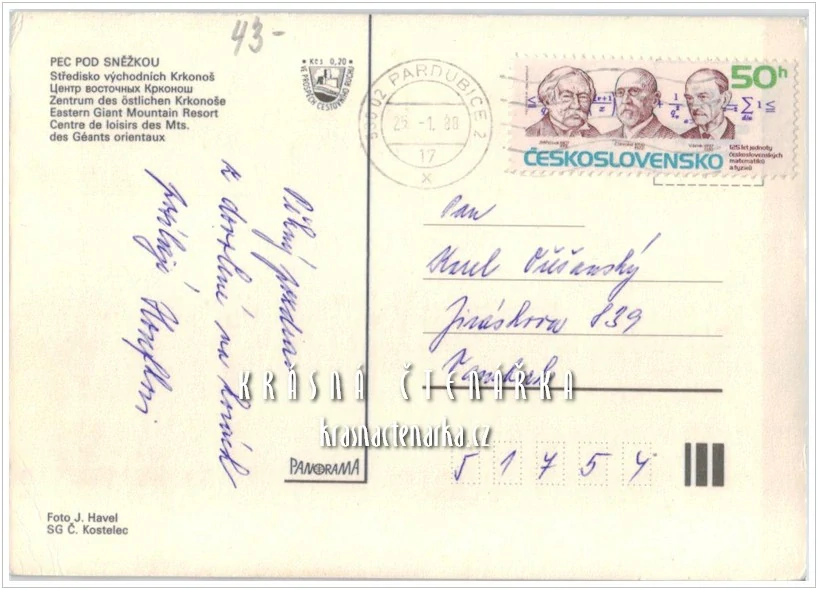 43-
PEC POD SNĚŽKOU
Středisko východních Krkonoš
Центр восточных Крконош
Zentrum des östlichen Krkonoše
Eastern Giant Mountain Resort
Centre de loisirs des Mts.
des Géants orientaux
Kčs 0,20
VE PROSPĚCH CESTOVNÍHO RUCHU
PARDUBICE 2
25. -1. 88
17
x
50h
ČESKOSLOVENSKO
125 let jednoty
československých
matematiků
a fyziků
Pěkný pozdrav
z dovolené na horách
posílají
Pan
Karel
Jiráskova 839
Vamberk
51754
KRÁSNÁ ČTENÁŘKA
krasnactenarka.cz
PANORAMA
Foto J. Havel
SG Č. Kostelec